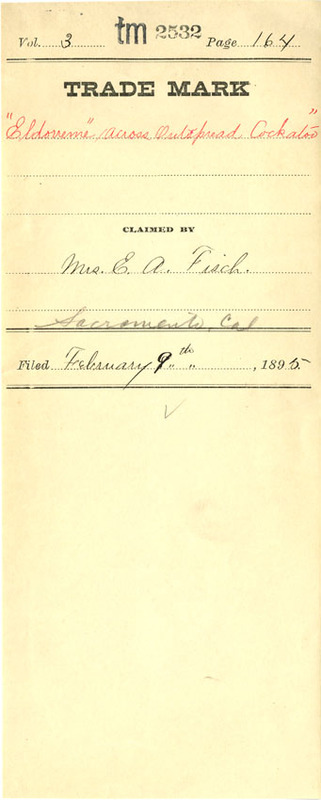 Vol. 3 tm 2532 Page 164
TRADE MARK
"Eldorreme" across Outspread Cockatoo"
CLAIMED BY
Mrs. E. A. Fisch.
Sacramento, Cal
Filed February 9th " , 1895